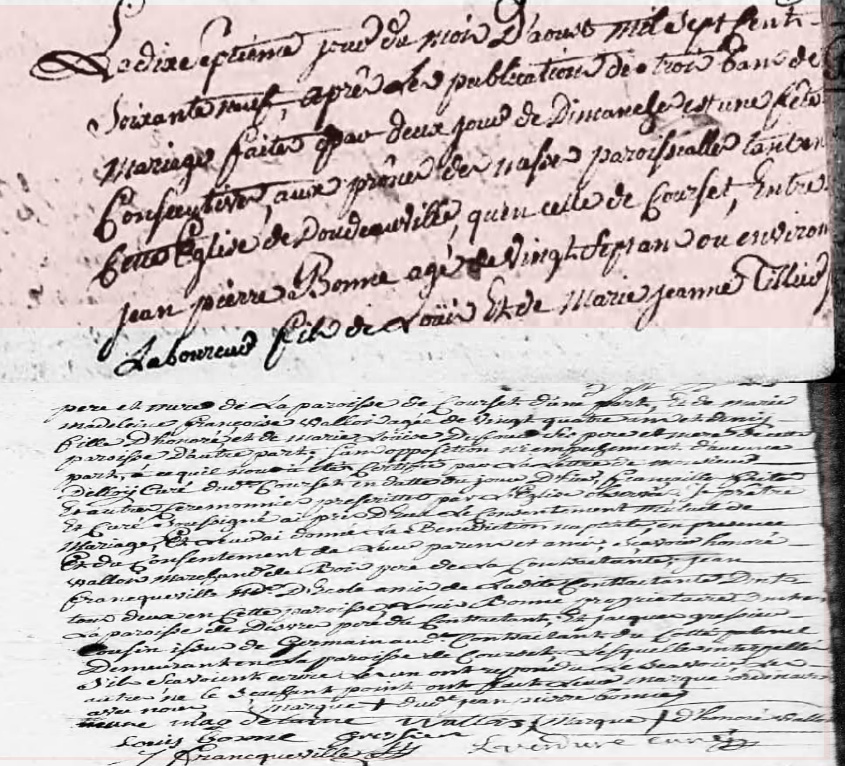 La dixe Septiéme jour du mois D'aoust mil sept Cent
Soixante neuf, aprés Les publications de trois bans de
Mariage faites par deux jours de Dimanche est une fete
Consecutives, aux prônes des messes paroissialles tant en
Cette Eglise de Doudeauville, qu'en celle de Courset, Entre
jean pierre Bonne agé de vingt sept ans ou environ
Laboureur fils de Loüis Et de Marie jeanne Tillier
pere et mere de La paroisse de Courset d'une part, Et de marie
madeleine françoise Wallois agée de vingt quatre ans et demij
fille D'honoré et de marie Loüise pere et mere de cette
paroisse D'autre part, sans opposition ni empechement d'aucune
part, à ce qu'il nous a été Certifié par La Lettre de monsieur
Delloij Curé dud. Courset en datte du jour D'hier, fiancailles faites
Et autres Ceremonies prescrittes par L'Eglise observées, je prêtre
Et Curé soussigné ai pris d'Eux Le Consentement mutuel de
Mariage, Et Leur ai donné La Benediction nuptiale, en presence
Et du Consentement de Leurs parens et amis, sçavoir honoré
Wallois Marchand de Bois pere de La Contractante, jean
francqueville D'Ecole ami de Ladite Contractante Dmts
tous deux en Cette paroisse Louis Bonne, proprietaire dmt en
La paroisse de pere du Contractant, Et jacques gressier
Cousin issu de Germain aud. Contractant du Cotté paternel
Demeurant en La paroisse de Courset. Lesquels interpellés
S'ils sçavoient ecrire Les un ont repondu Le sçavoir, Les
autre ne le sçachant point ont fait Leur marque ordinaire
avec nous (Marque + dud. jean pierre bonne)
marie mag delaine Wallois (Marque + d'honoré Wallois
Louis bonne gressier
j francqueville Lavendure curé